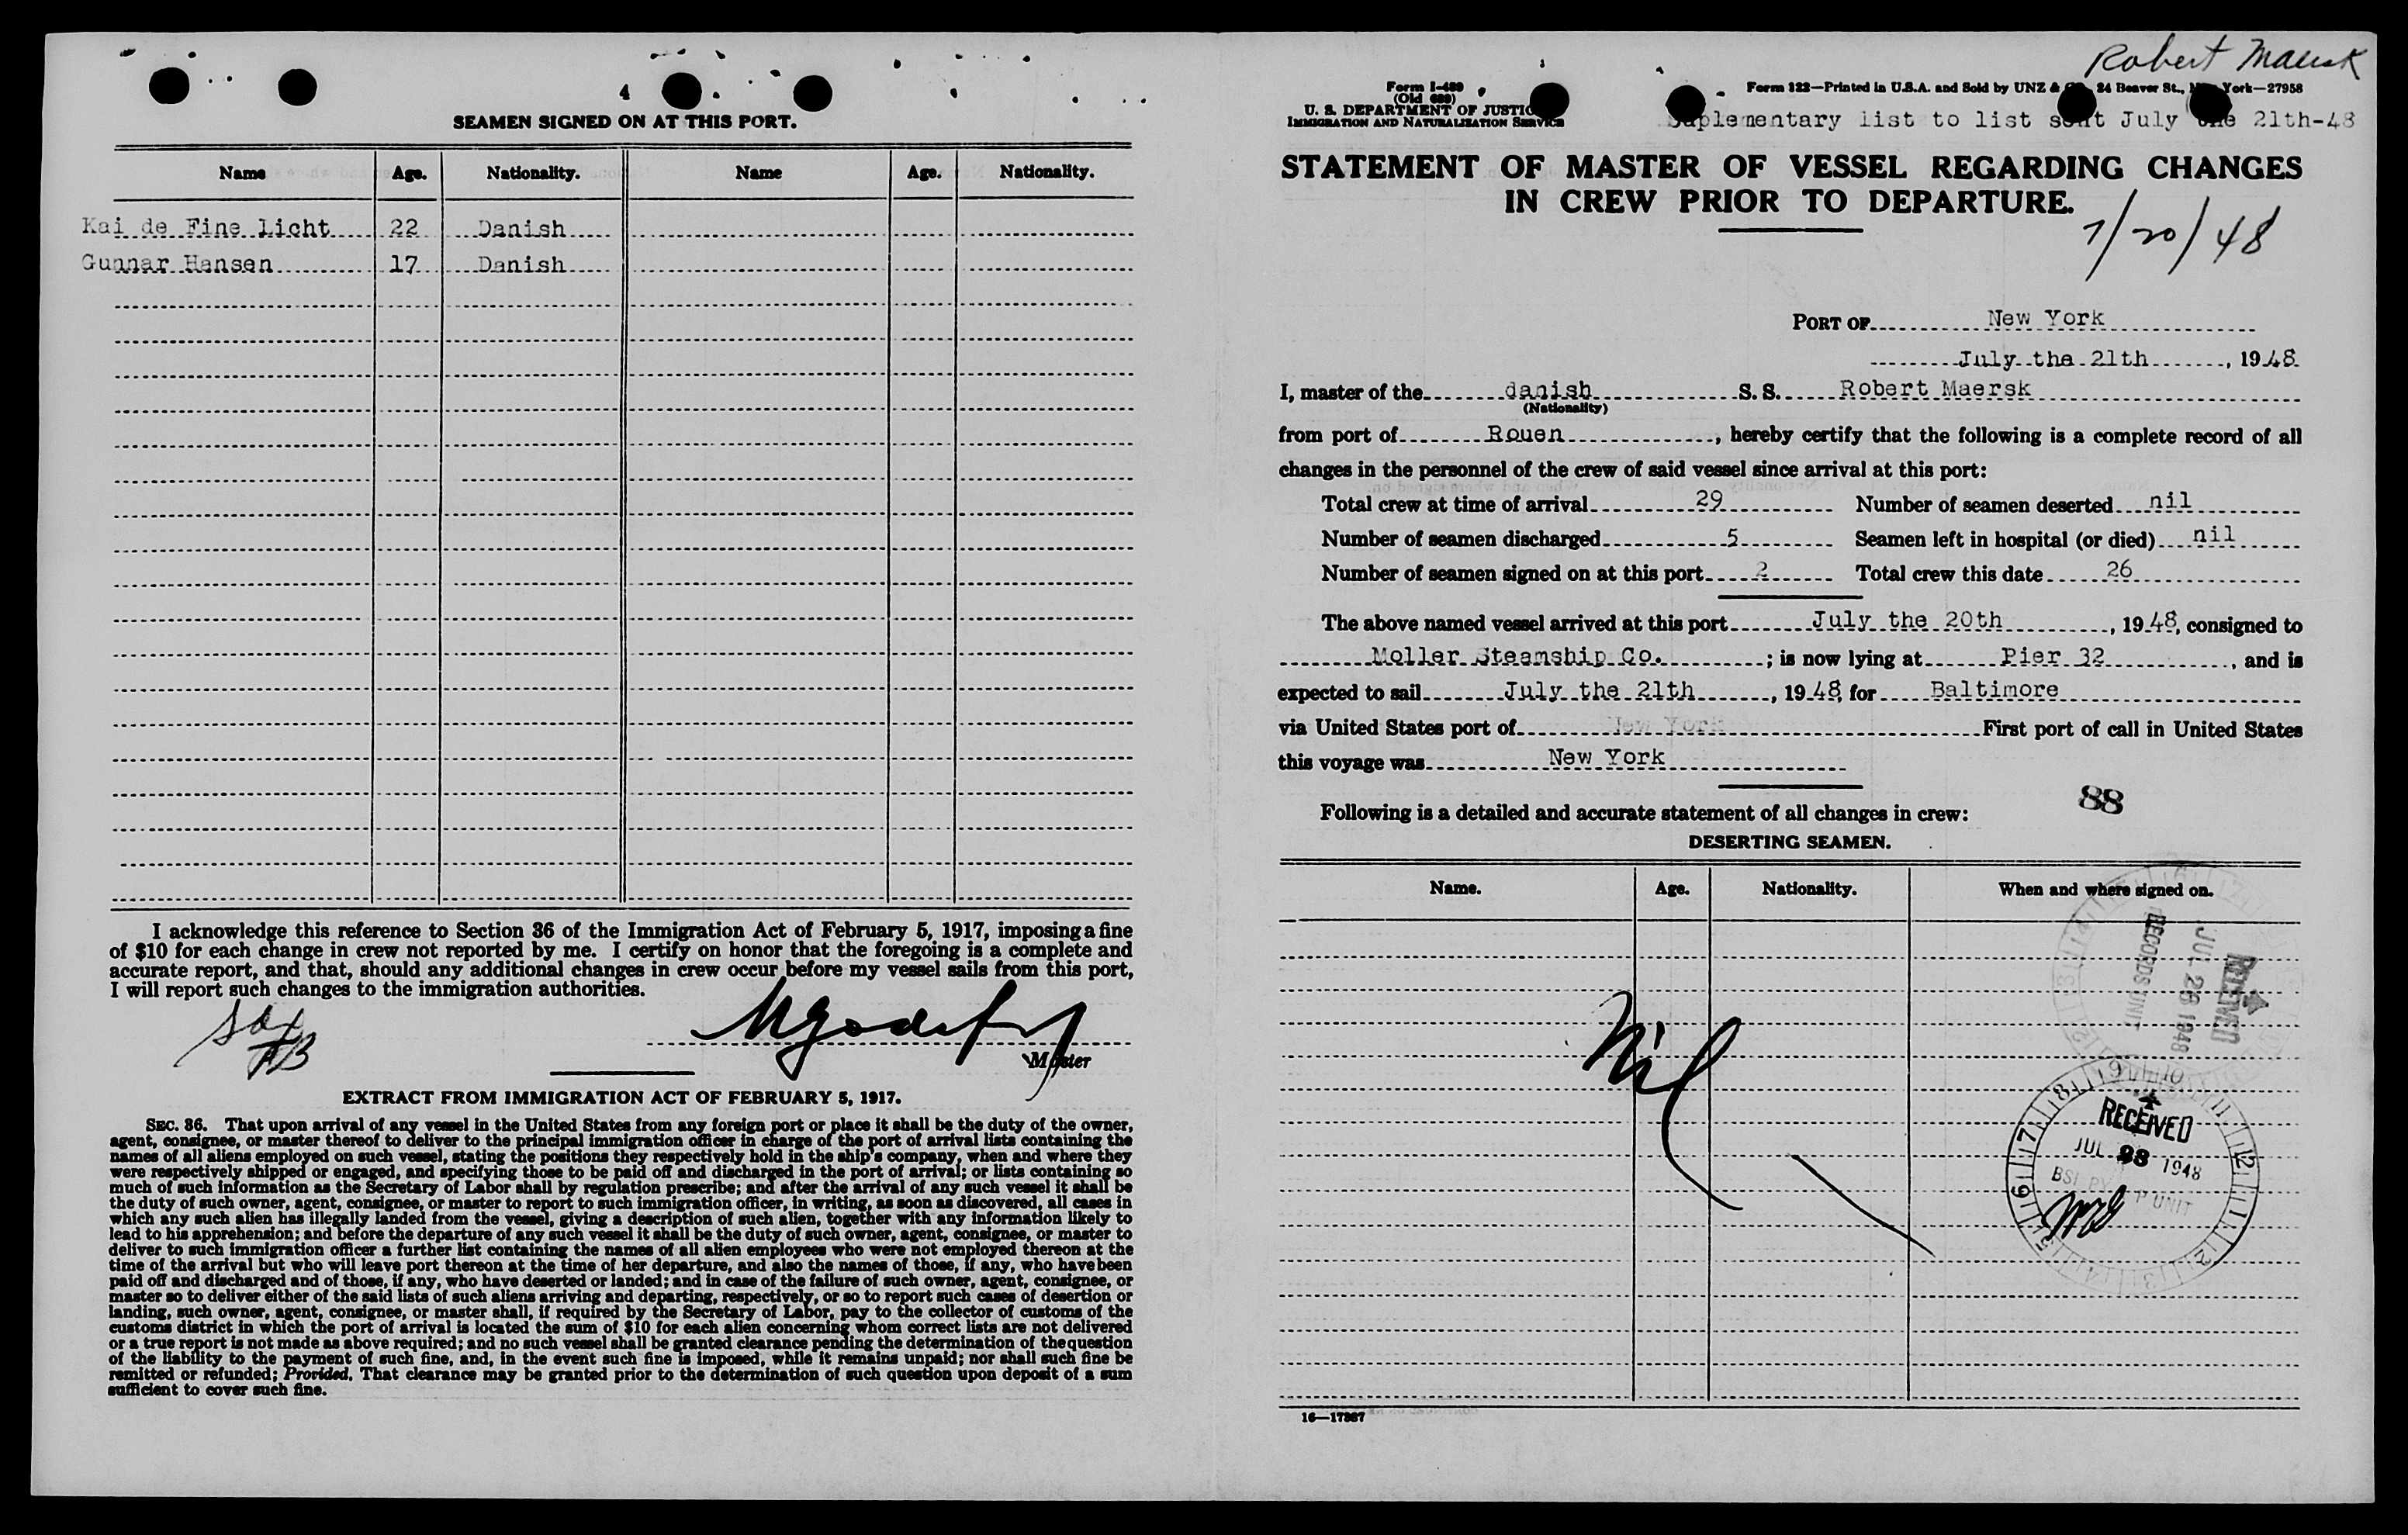 4
SEAMEN SIGNED ON AT THIS PORT.
Name Age. Nationality. Name Age. Nationality.
Kai de Fine Licht 22 Danish
Gunnar Hansen 17 Danish
I acknowledge this reference to Section 36 of the Immigration Act of February 5, 1917, imposing a fine
of $10 for each change in crew not reported by me. I certify on honor that the foregoing is a complete and
accurate report, and that, should any additional changes in crew occur before my vessel sails from this port,
I will report such changes to the immigration authorities.
Master
EXTRACT FROM IMMIGRATION ACT OF FEBRUARY 5, 1917.
SEC. 36. That upon arrival of any vessel in the United States from any foreign port or place it shall be the duty of the owner,
agent, consignee, or master thereof to deliver to the principal immigration officer in charge of the port of arrival lists containing the
names of all aliens employed on such vessel, stating the positions they respectively hold in the ship's company, when and where they
were respectively shipped or engaged, and specifying those to be paid off and discharged in the port of arrival; or lists containing so
much of such information as the Secretary of Labor shall by regulation prescribe; and after the arrival of any such vessel it shall be
the duty of such owner, agent, consignee, or master to report to such immigration officer, in writing, as soon as discovered, all cases in
which any such alien has illegally landed from the vessel, giving a description of such alien, together with any information likely to
lead to his apprehension; and before the departure of any such vessel it shall be the duty of such owner, agent, consignee, or master to
deliver to such immigration officer a further list containing the names of all alien employees who were not employed thereon at the
time of the arrival but who will leave port thereon at the time of her departure, and also the names of those, if any, who have been
paid off and discharged and of those, if any, who have deserted or landed; and in case of the failure of such owner, agent, consignee, or
master so to deliver either of the said lists of such aliens arriving and departing, respectively, or so to report such cases of desertion or
landing, such owner, agent, consignee, or master shall, if required by the Secretary of Labor, pay to the collector of customs of the
customs district in which the port of arrival is located the sum of $10 for each alien concerning whom correct lists are not delivered
or a true report is not made as above required; and no such vessel shall be granted clearance pending the determination of the question
of the liability to the payment of such fine, and, in the event such fine is imposed, while it remains unpaid; nor shall such fine be
remitted or refunded; Provided, That clearance may be granted prior to the determination of such question upon deposit of a sum
sufficient to cover such fine.
Robert Maersk
Form I-489
(Old 689)
U. S. DEPARTMENT OF JUSTICE
IMMIGRATION AND NATURALIZATION SERVICE
Form 322—Printed in U.S.A. and Sold by UNZ & 24 Beaver St., York—27958
Suplementary list to list sent July the 21th-48
STATEMENT OF MASTER OF VESSEL REGARDING CHANGES
IN CREW PRIOR TO DEPARTURE.
7/20/48
PORT OF New York
July the 21th, 1948
I, master of the danish S. S. Robert Maersk
(Nationality)
from port of Rouen, hereby certify that the following is a complete record of all
changes in the personnel of the crew of said vessel since arrival at this port:
Total crew at time of arrival 29 Number of seamen deserted nil
Number of seamen discharged 5 Seamen left in hospital (or died) nil
Number of seamen signed on at this port 2 Total crew this date 26
The above named vessel arrived at this port July the 20th, 1948, consigned to
Moller Steamship Co.; is now lying at Pier 32, and is
expected to sail July the 21th, 1948, for Baltimore
via United States port of New York First port of call in United States
this voyage was New York
88
Following is a detailed and accurate statement of all changes in crew:
DESERTING SEAMEN.
Name. Age. Nationality. When and where signed on.
RECEIVED
JUL 28 1948
RECORDS UNIT
Nil
RECEIVED
JUL 28 1948
16—17987